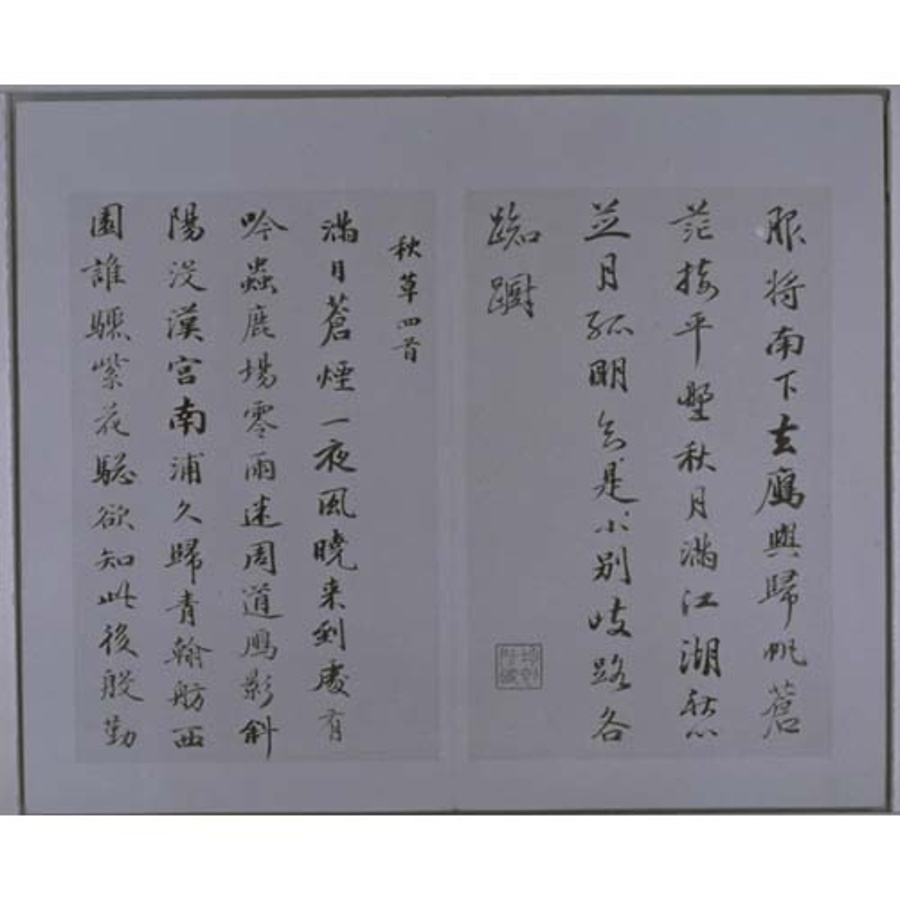 眼将南下去鴈與歸帆蒼
茫接平野秋月滿江湖愁
並月孤明盡是小別岐路各
踟躕
秋草四首
滿目蒼煙一夜風曉来到處有
吟蟲鹿場零雨迷周道鴈影斜
陽没漢宮南浦久歸青翰舫西
園誰騁紫花驄欲知此後殷勤